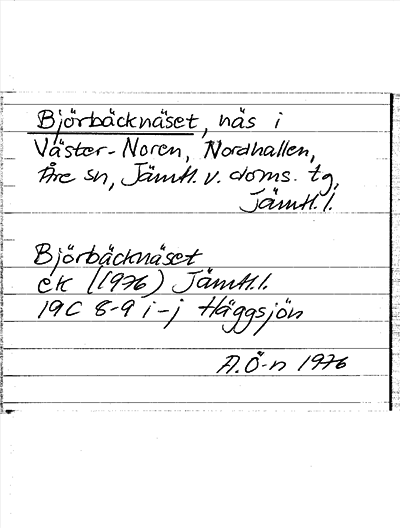 Björbäcknäset, näs i
Väster-Noren, Nordhallen,
Åre sn, Jämtl. v. doms. tg,
Jämtl. l.
Björbäcknäset
ek (1976) Jämtl. l.
19C 8-9 i-j Häggsjön
A.Ö-n 1976